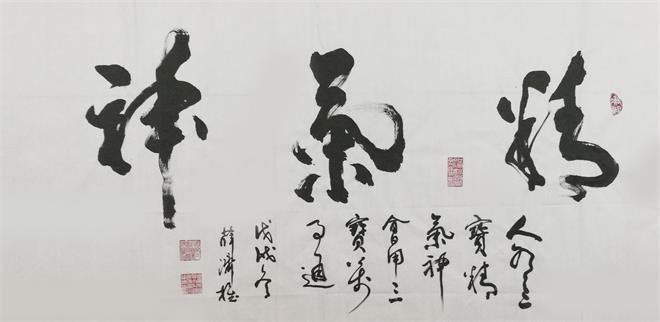 精氣神
人有三
寶精
氣神
會用三
寶萬
事通
戊戌冬
薛濟